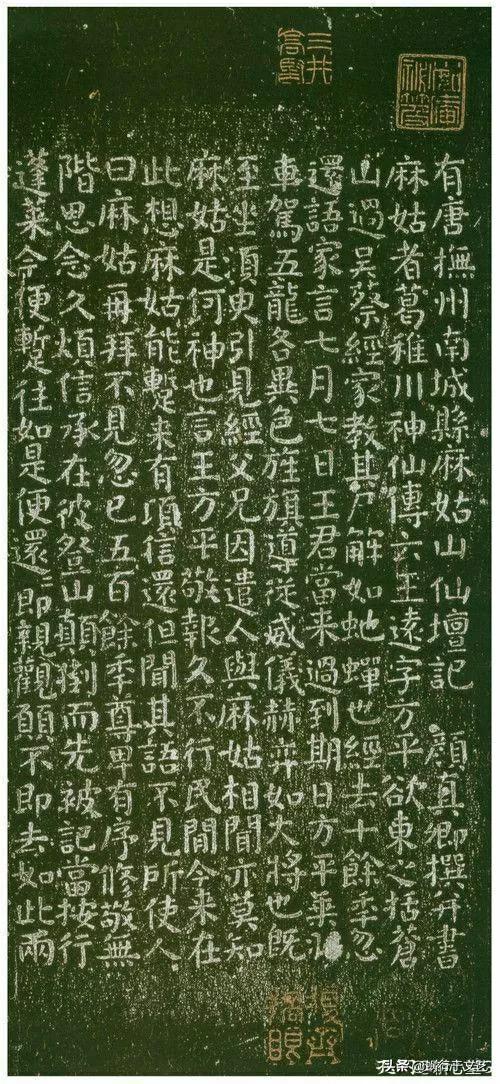 有唐撫州南城縣麻姑山仙壇記 顏真卿撰并書
麻姑者葛稚川神仙傳云王遠字方平欲東之括蒼
山過吳蔡經家教其尸解如虵蟬也經去十餘年忽
還語家言七月七日王君當来過到期日方平乘羽
車駕五龍各異色旌旗導從威儀赫弈如大將也旣
至坐須臾引見經父兄因遣人與麻姑相聞亦莫知
麻姑是何神也言王方平敬報久不行民閒今来在
此想麻姑能蹔来有頃信還但聞其語不見所使人
曰麻姑再拜不見忽已五百餘年尊卑有序修敬無
階思念久煩信承在彼登山顛倒而先被記當按行
蓬萊今便蹔往如是便還還即親觀願不即去如此兩
三井
高堅
頭条@